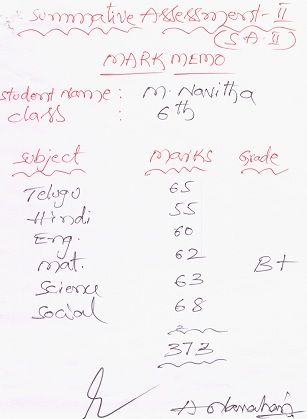 Summative Assessment-II
(S A-II)
MARK MEMO
Student Name : M. Navitha
Class : 6th
Subject Marks Grade
Telugu 65
Hindi 55
Eng. 60
mat. 62
Science 63
B+
Social 68
373